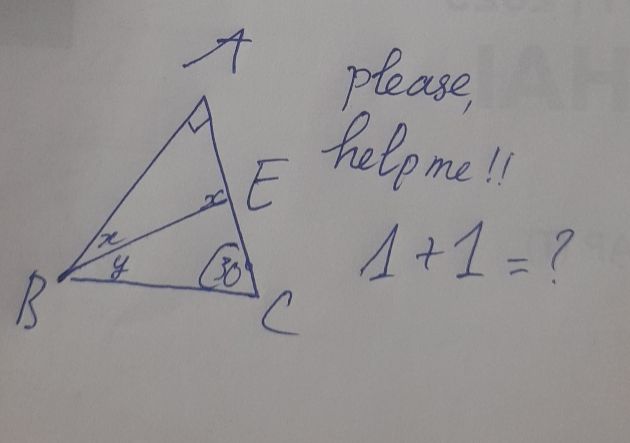 A
please,
help me!!
x
E
x
y
(30
1+1=?
B
C